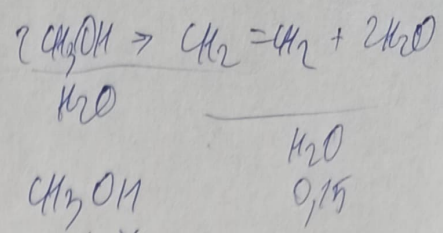 2 CH3OH → CH2=CH2 + 2H2O
H2O
H2O
CH3OH 0,15